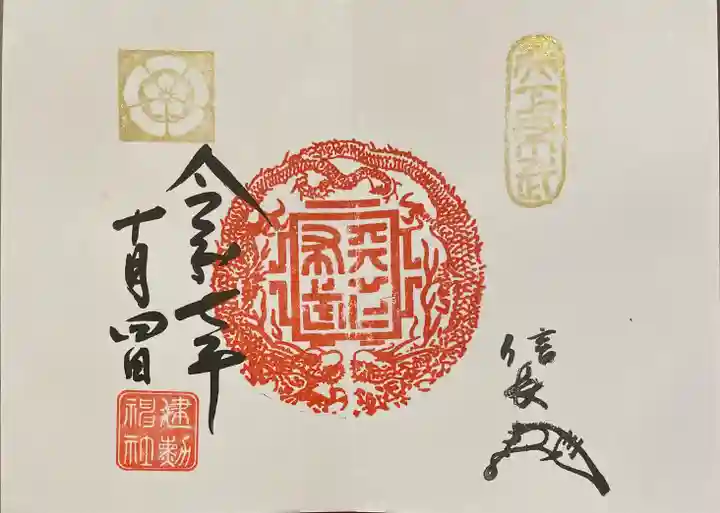 天下布武
天下布武
信長
令和七年
十月四日
建勲
神社